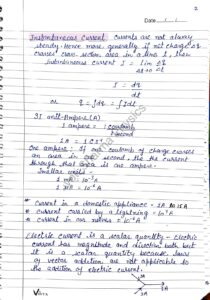 Date ../../..
2
Instantaneous Current Currents are not always
steady. Hence more generally if net charge ΔQ
crosses cross-section area in a time t, then
Instantaneous current I = lim ΔQ
Δt→0 Δt
I = dq
dt
or q = ∫dq = ∫I dt
SI unit - Ampere (A)
1 Ampere = 1 coulomb
1 second
1A = 1 C s⁻¹
One ampere: If one coulomb of charge crosses
an area in one sec, the the current
through that area is one ampere.
Smaller units -
1 mA = 10⁻³ A
1 μA = 10⁻⁶ A
* Current in a domestic appliance - 1A to 15A
* current carried by a lightning = 10⁴ A
* current in our nerves = 10⁻⁶ A
Electric current is a scalar quantity - Electric
current has magnitude and direction both but
it is a scalar quantity because laws
of vector addition are not applicable to
the addition of electric current.